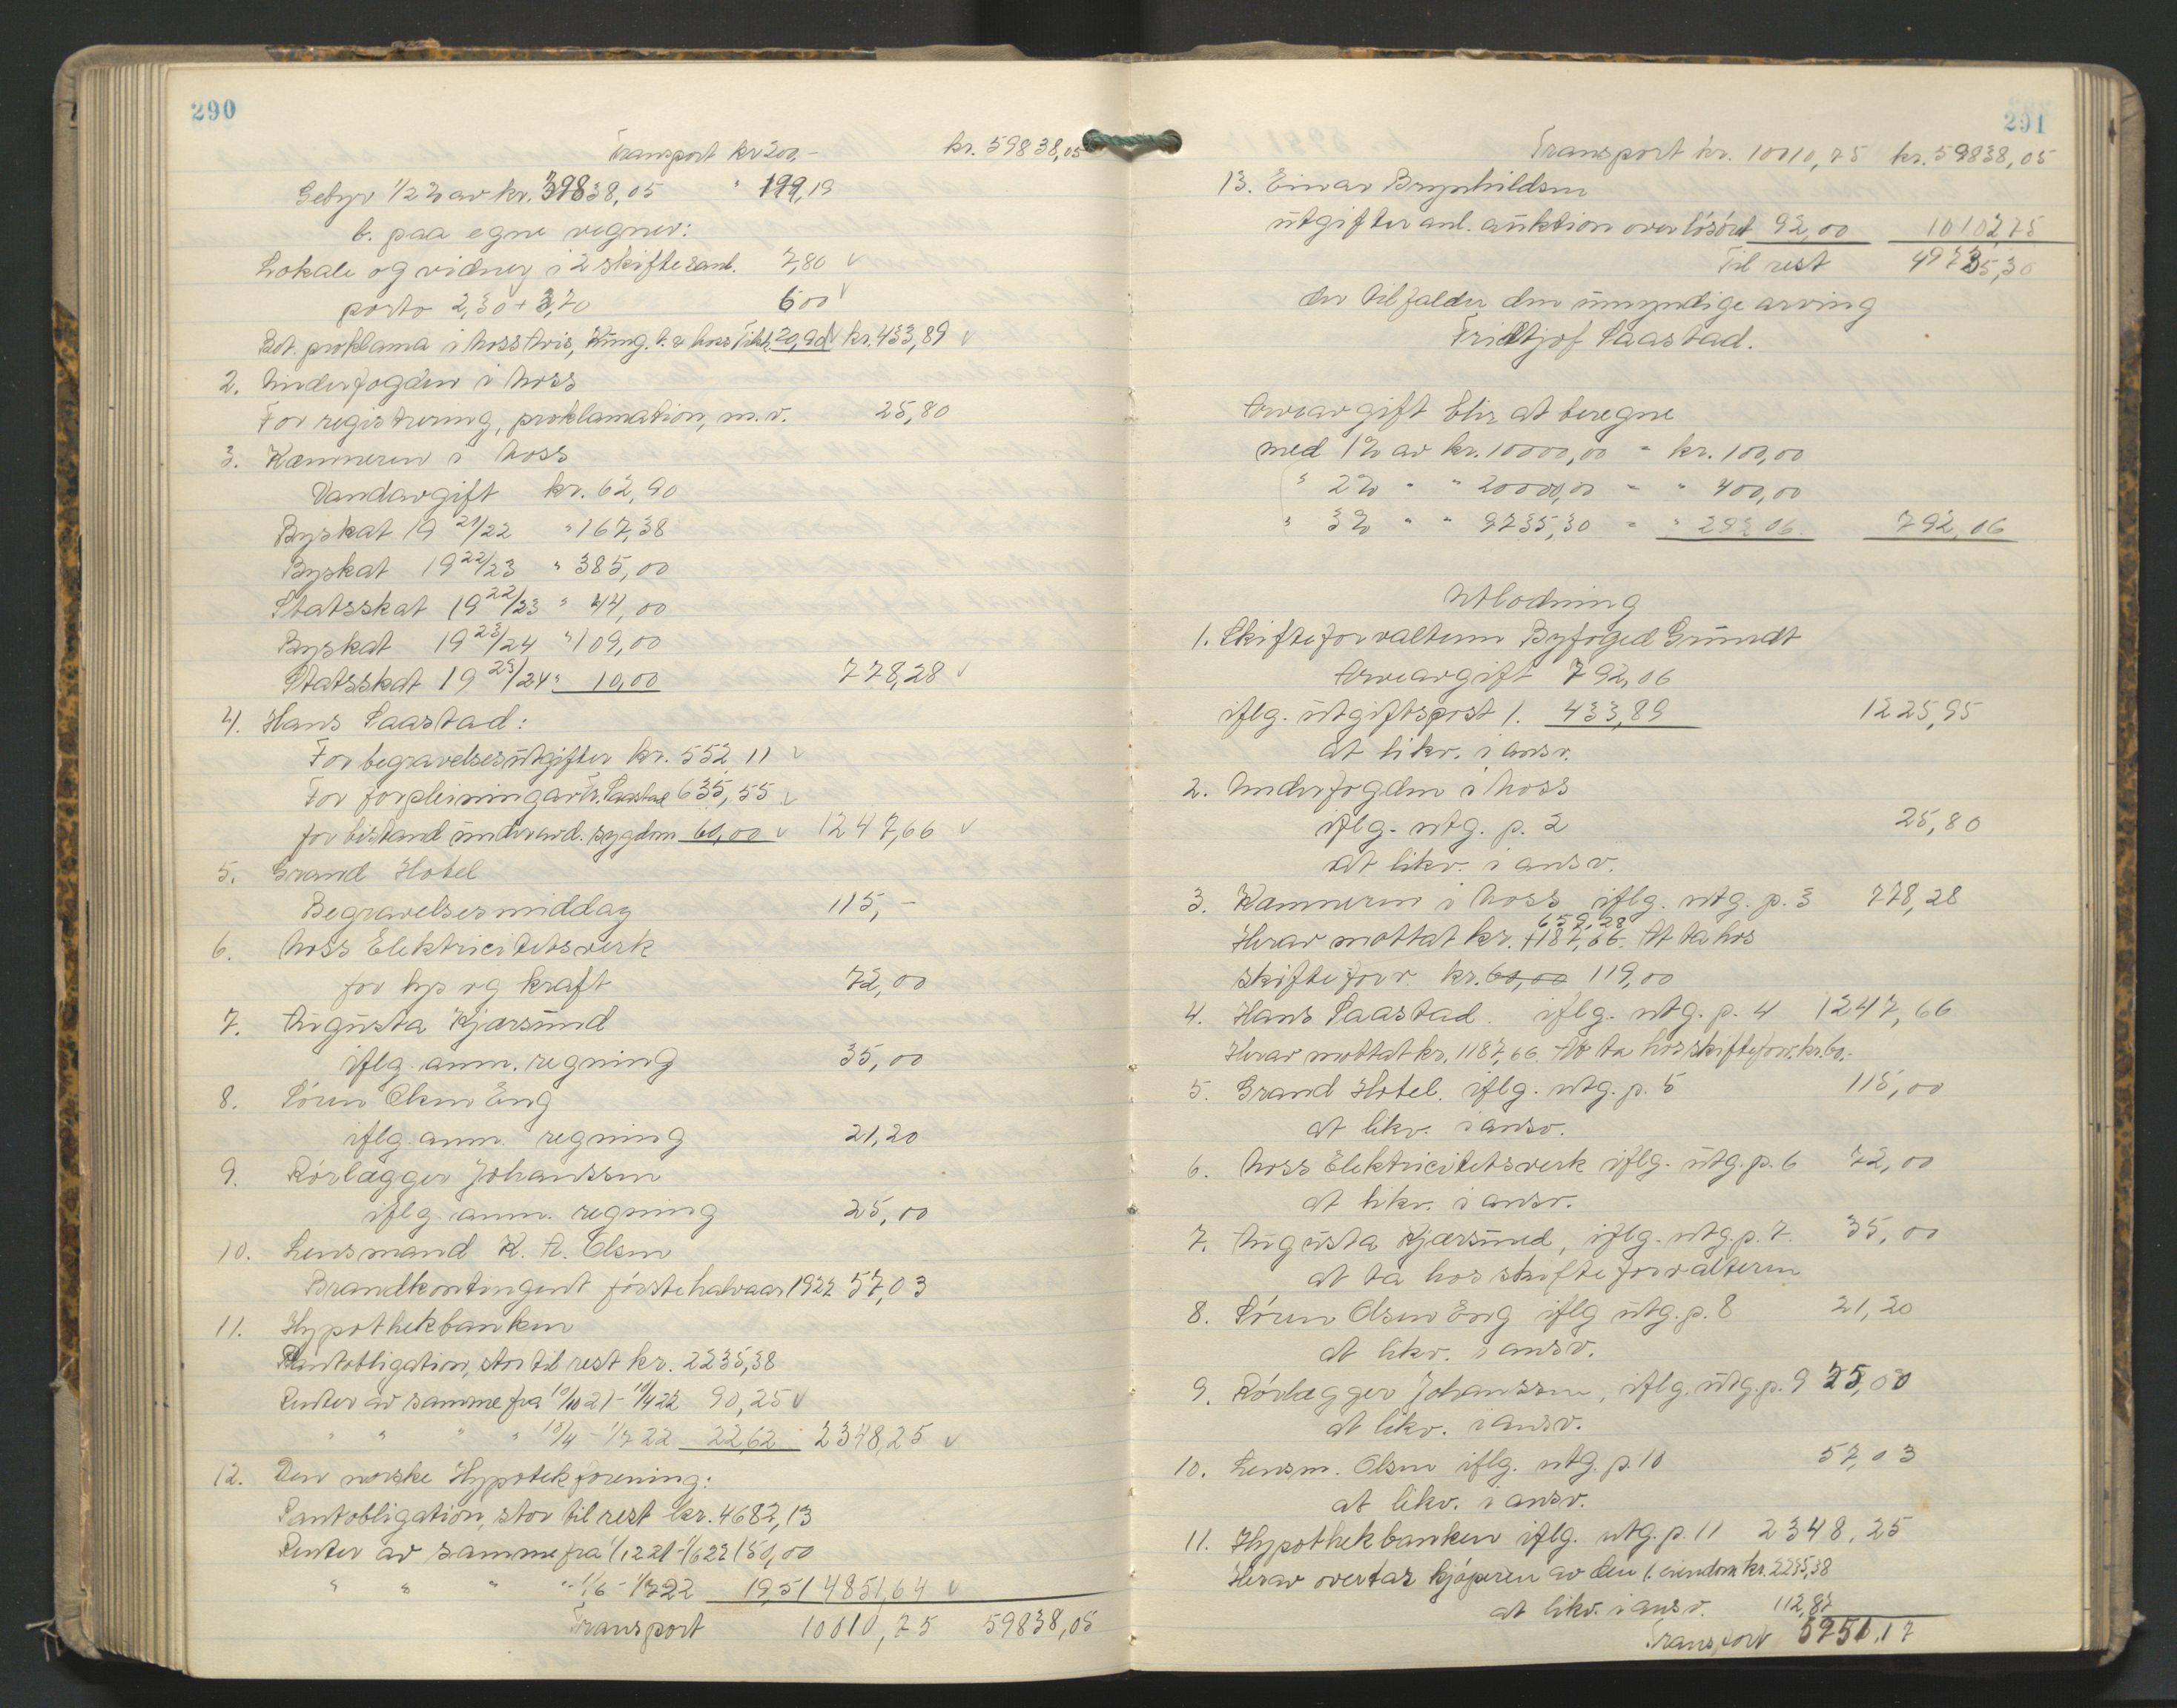 290
Transport kr 200,- kr. 59838,05
Gebyr 1/2 % av kr. 39838,05 " 199,19
b. paa egne vegner:
Lokale og vidner i 2 skiftesaml. 7,80 ✓
porto 2,30 + 3,70 6 00 ✓
Bet. proklama i Moss Avis, Kung. t. & Moss Tilsk. 20,90 ✓ kr. 433,89 ✓
2. Underfogden i Moss
For registrering, proklamation, m.v. 25,80
3. Kæmneren i Moss
Vandavgift kr. 62,90
Byskat 19 21/22 " 167,38
Byskat 19 22/23 " 385,00
Statsskat 19 22/23 " 44,00
Byskat 19 23/24 " 109,00
Statsskat 19 23/24 " 10,00 778,28 ✓
4. Hans Saastad:
For begravelsesutgifter kr. 552,11 ✓
For forpleining av Fr. Saastad 635,55 ✓
for bistand under avd. sygdom 60,00 ✓ 1247,66 ✓
5. Grand Hotel
Begravelsesmiddag 115,-
6. Moss Elektricitetsverk
for lys og kraft 72,00
7. Augusta Kjærsund
iflg. anm. regning 35,00
8. Sören Olsen Eng
iflg. anm. regning 21,20
9. Rörlægger Johanssen
iflg. anm. regning 25,00
10. Lensmand K. A. Olsen
Brandkontingent förste halvaar 1922 57,03
11. Hypothekbanken
Pantobligation, stor til rest kr. 2235,38
Renter av samme fra 10/10 21 - 10/4 22 90,25 ✓
" " " " 10/4 - 1/7 22 22,62 2348,25 ✓
12. Den norske Hypotekforening:
Pantobligation, stor til rest kr. 4682,13
Renter av samme fra 1/12 21 - 1/6 22 150,00
" " " " 1/6 - 1/7 22 19,51 4851,64 ✓
Transport 10010,75 59838,05
291
Transport kr. 10010,75 kr. 59838,05
13. Einar Brynhildsen
utgifter anl. auktion over lösöret 92,00 10102,75
Til rest 49735,30
der tilfalder den umyndige arving
Fridtjof Saastad.
Arveavgift blir at beregne
med 1 % av kr. 10000,00 = kr. 100,00
" 2 % " " 20000,00 = " 400,00
" 3 % " " 9735,30 = " 292 06 792,06
Utlodning
1. Skifteforvalteren Byfoged Grundt
Arveavgift 792,06
iflg. utgiftspost 1. 433,89 1225,95
at likv. i ansv.
2. Underfogden i Moss
iflg. utg. p. 2 25,80
at likv. i ansv.
3. Kæmneren i Moss iflg. utg. p. 3 778,28
659,28
Herav mottat kr. 1187,66. At ta hos
skifteforv. kr. 60,00 119,00
4. Hans Saastad. iflg. utg. p. 4 1247,66
Herav mottat kr. 1187,66. At ta hos skifteforv. kr. 60.-
5. Grand Hotel. iflg. utg. p. 5 115,00
at likv. i ansv.
6. Moss Elektricitetsverk iflg. utg. p. 6 72,00
at likv. i ansv.
7. Augusta Kjærsund, iflg. utg. p. 7. 35,00
at ta hos skifteforvalteren
8. Sören Olsen Eng iflg utg. p. 8 21,20
at likv. i ansv.
9. Rörlægger Johanssen, iflg. utg. p. 9 25,00
at likv. i ansv.
10. Lensm. Olsen iflg. utg. p. 10 57,03
at likv. i ansv.
11. Hypothekbanken iflg. utg. p. 11 2348,25
Herav overtar kjöperen av den f. eiendom kr. 2235,38
at likv. i ansv. 112,87
Transport 5951,17